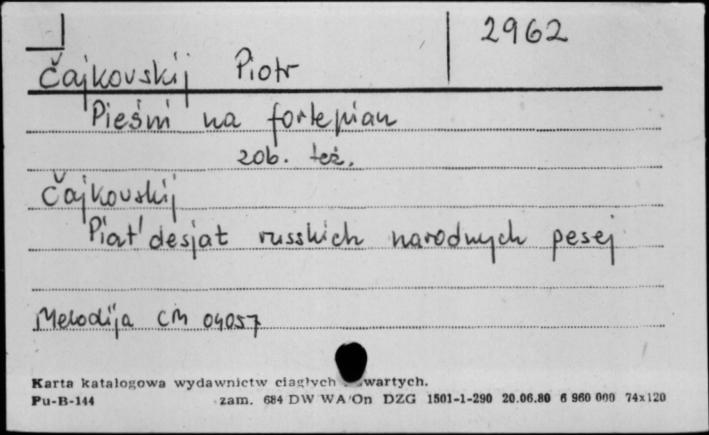 2962
Čajkovskij Piotr
Pieśni na fortepian
zob. też.
Čajkovskij
Piat'desjat russkich narodnych pesej
Melodija CM 04057
Karta katalogowa wydawnictw ciągłych wartych.
Pu-B-144 zam. 684 DW WA/On DZG 1501-1-290 20.06.80 6 960 000 74x120